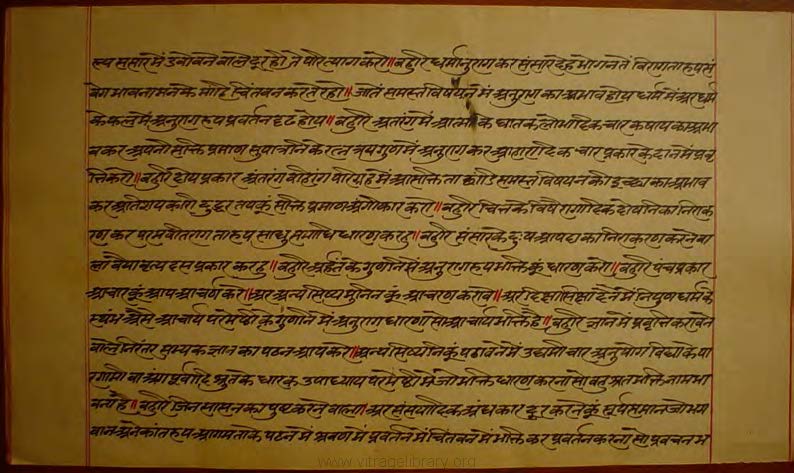 त्त्व संसार में डबोवने वाले दूर ही तै परित्याग करो॥ बहुरि धर्मानुराग कर संसार देह भोगन तें विरागता रूप सं
वेग भावना मन के मांहि चिंतवन करते रहो॥ जातें समस्त विषयन में अनुराग का अभाव होय धर्म में अर धर्म
के फल में अनुराग रूप प्रवर्तन दृढ होय॥ बहुरि अंतरंग में आत्मा के घातक लोभादिक चार कषाय का अभा
व कर अपनी शक्ति प्रमाण सुपात्रनि के रत्नत्रय गुण में अनुराग कर आहारादिक चार प्रकार के दान में प्रवृ
त्ति करो॥ बहुरि दोय प्रकार अंतरंग बहिरंग परिग्रह में आसक्तिता छांडि समस्त विषयन की इच्छा का अभाव
कर अतिशय कारी दुद्धर तप कूं शक्ति प्रमाण अंगीकार करो॥ बहुरि चित्त के विषै रागादिक दोषनि का निराक
रण कर परम वीतरागता रूप साधु समाधि धारण करहु॥ बहुरि संसार के दुःष आपदा का निराकरण करने वा
ला वैयावृत्य दस प्रकार करहु॥ बहुरि अर्हंत के गुणनि में अनुराग रूप भक्ति कूं धारण करो॥ बहुरि पंच प्रकार
आचार कूं आप आचर्ण करै॥ अर अन्य सिष्य मुनिन कूं आचरण करावै॥ अर दिक्षा सिक्षा देने में निपुण धर्म के
स्थंभ औसे आचार्य परमेष्ठी के गुणनि में अनुराग धारणा सो आचार्य भक्ति है॥ बहुरि ज्ञान में प्रवृत्ति करावने
वाले निरंतर सम्यक ज्ञान का पठन आप करै॥ अन्य सिष्यनि कूं पढावने में उद्यमी चार अनुयोग विद्या के पा
रगामी वा अंग पूर्वादि श्रुत के धारक उपाध्याय परमेष्ठी में जो भक्ति धारण करना सो बहु श्रुत भक्ति नाम भा
वना है॥ बहुरि जिन सासन का पुष्ट करने वाला॥ अर संसयादिक अंधकार दूर करने कूं सूर्य समान जो भग
वान अनेकांत रूप आगम ताके पठने में श्रवण में प्रवर्तन में चिंतवन में भक्ति कर प्रवर्तन करना सो प्रवचन भ
www.vitragelibrary.org